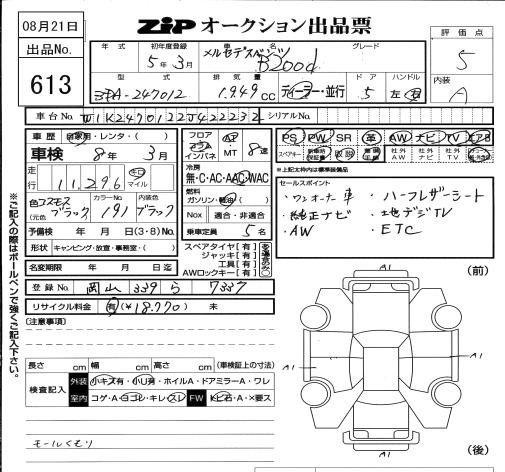 08月21日
ZIP オークション出品票
出品No.
613
年式
初年度登録
車名
グレード
評価点
5年3月
メルセデスベンツ
B200d
5
型式
排気量
ドア
ハンドル
内装
3DA-247012
1.949cc
ディーゼル・並行
5
左・右
A
車台No.
W1K2470122J422232
シリアルNo.
車歴
自家用・レンタ・( )
フロア
コラム
インパネ
AT
MT
8速
PS PW SR 革 AW ナビ TV エアB
車検
8年3月
スペアキー
取説
社外AW
社外ナビ
社外TV
走行
11.296
キロ
マイル
冷房
無・C・AC・AAC・WAC
※上記太枠内は標準装備品
燃料
ガソリン・軽油( )
セールスポイント
・ワンオーナー車
・ハーフレザーシート
色 コスモスブラック
(元色
カラーNo.
191
内装
ブラック
・純正ナビ
・地デジTV
Nox
適合・非適合
・AW
・ETC
予備検
年 月 日(3・8)No.
乗車定員
5名
形状
キャンピング・放送・事務室・( )
スペアタイヤ[有]
ジャッキ[有]
工具[有]
AWロックキー[有]
名変期限
年 月 日迄
(前)
登録No.
岡山
339
ら
7337
※ご記入の際はボールペンで強くご記入下さい。
リサイクル料金
有(¥18.770)
未
(注意事項)
A1
A1
A1
A1
長さ cm
幅 cm
高さ cm
(車検証上の寸法)
検査記入
外装
小キズ有・小U有・ホイルA・ドアミラーA・ワレ
室内
コゲ・A・ヨゴレ・キレ・スレ
FW
トビ石・A・×要ス
モールくもり
(後)